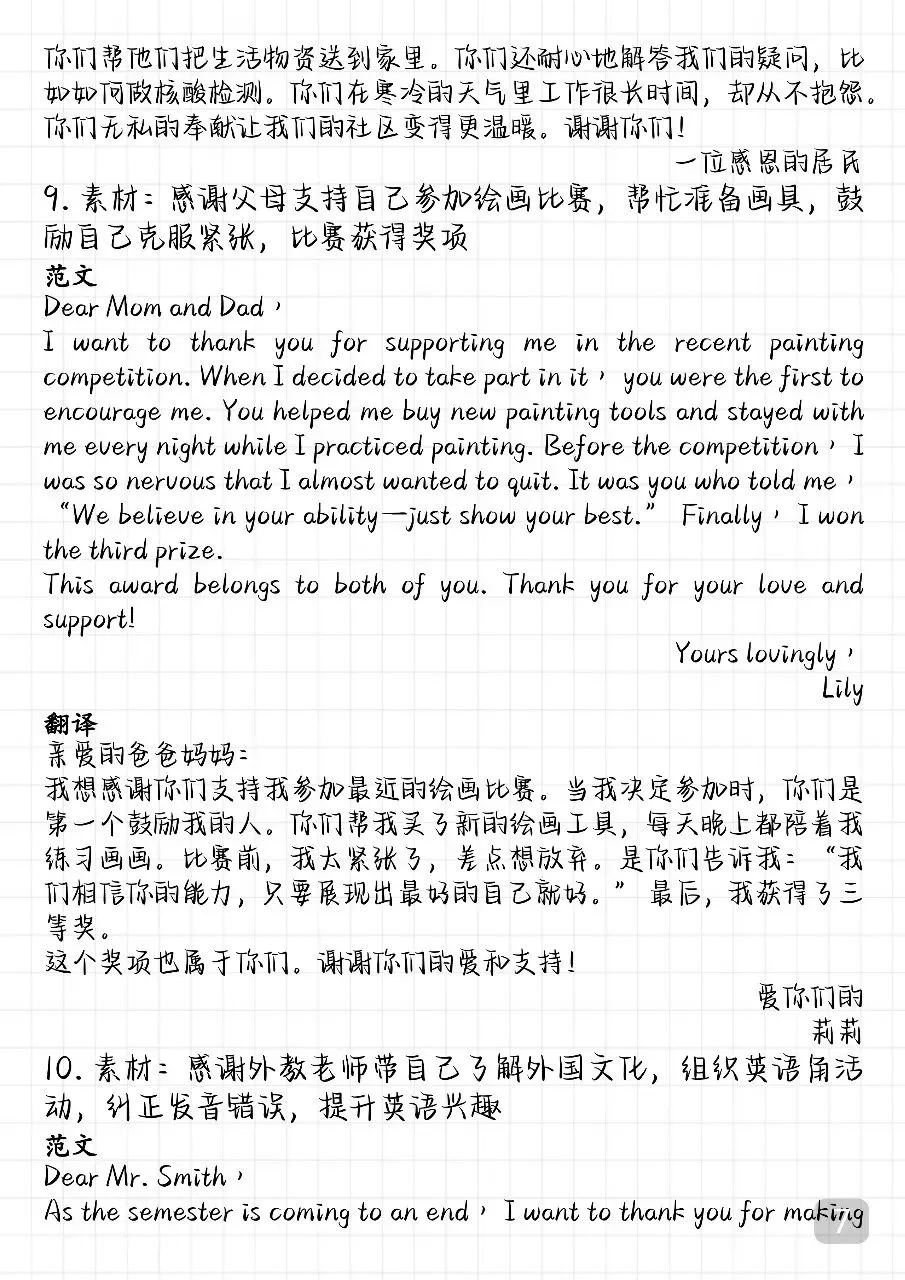 你们帮他们把生活物资送到家里。你们还耐心地解答我们的疑问，比
如如何做核酸检测。你们在寒冷的天气里工作很长时间，却从不抱怨。
你们无私的奉献让我们的社区变得更温暖。谢谢你们！
一位感恩的居民
9. 素材：感谢父母支持自己参加绘画比赛，帮忙准备画具，鼓
励自己克服紧张，比赛获得奖项
范文
Dear Mom and Dad，
I want to thank you for supporting me in the recent painting
competition. When I decided to take part in it， you were the first to
encourage me. You helped me buy new painting tools and stayed with
me every night while I practiced painting. Before the competition， I
was so nervous that I almost wanted to quit. It was you who told me，
“We believe in your ability—just show your best.” Finally， I won
the third prize.
This award belongs to both of you. Thank you for your love and
support!
Yours lovingly，
Lily
翻译
亲爱的爸爸妈妈：
我想感谢你们支持我参加最近的绘画比赛。当我决定参加时，你们是
第一个鼓励我的人。你们帮我买了新的绘画工具，每天晚上都陪着我
练习画画。比赛前，我太紧张了，差点想放弃。是你们告诉我：“我
们相信你的能力，只要展现出最好的自己就好。” 最后，我获得了三
等奖。
这个奖项也属于你们。谢谢你们的爱和支持！
爱你们的
莉莉
10. 素材：感谢外教老师带自己了解外国文化，组织英语角活
动，纠正发音错误，提升英语兴趣
范文
Dear Mr. Smith，
As the semester is coming to an end， I want to thank you for making
7